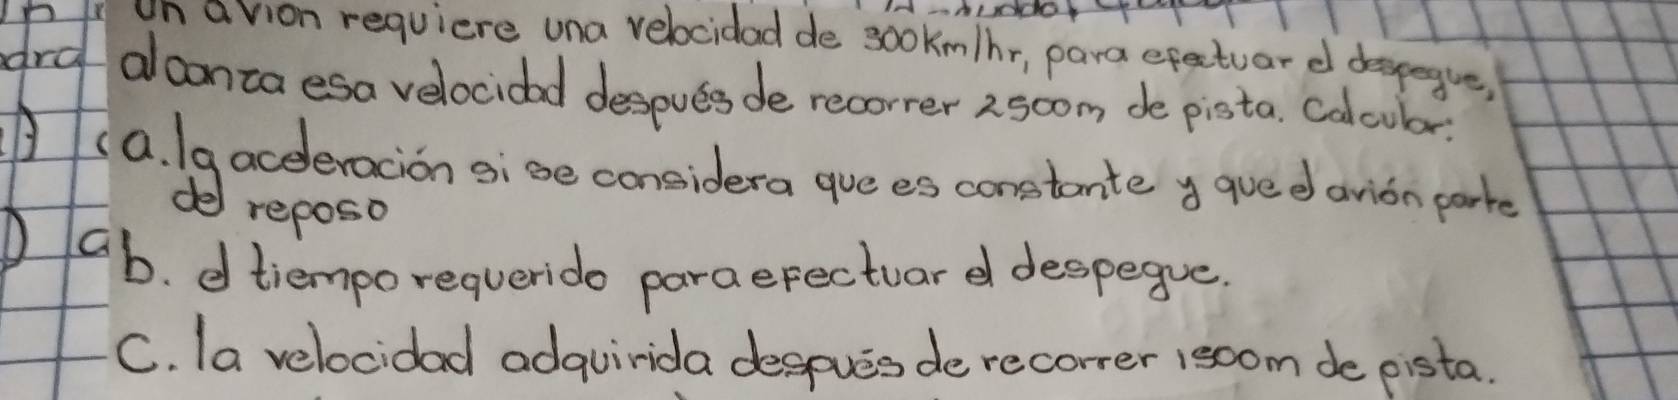 un avion requiere una velocidad de 300km/hr, para efectuar el despegue,
alcanza esa velocidad después de recorrer 2500m de pista. Calcular:
a. la aceleración si se considera que es constante y que el avión parte
del reposo
b. el tiempo requerido para efectuar el despegue.
c. la velocidad adquirida después de recorrer 1500m de pista.